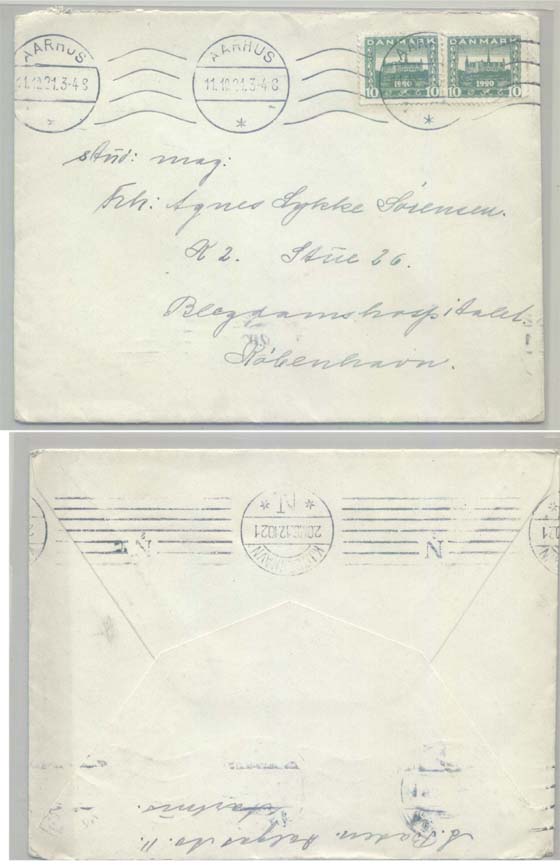 AARHUS
11.10.21.3-4 8
AARHUS
11.10.21.3-4 8
DANMARK
1920
10 10
DANMARK
1920
10 10
stud: mag:
Frk: Agnes Lykke Sørensen.
K 2. Stue 26.
Blegdamshospitalet.
København.
KJØBENHAVN
N
Aarhus.